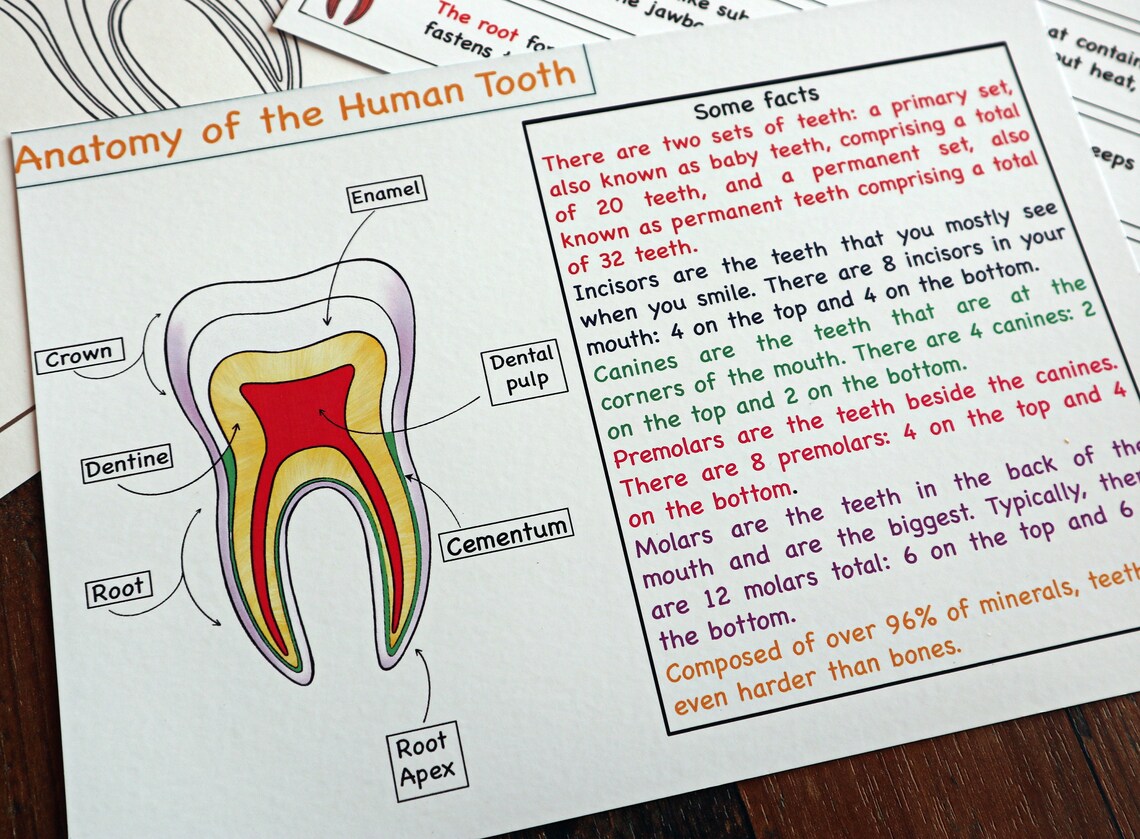 The root
fastens
Anatomy of the Human Tooth
Enamel
Crown
Dental
pulp
Dentine
Cementum
Root
Root
Apex
Some facts
There are two sets of teeth: a primary set,
also known as baby teeth, comprising a total
of 20 teeth, and a permanent set, also
known as permanent teeth comprising a total
of 32 teeth.
Incisors are the teeth that you mostly see
when you smile. There are 8 incisors in your
mouth: 4 on the top and 4 on the bottom.
Canines are the teeth that are at the
corners of the mouth. There are 4 canines: 2
on the top and 2 on the bottom.
Premolars are the teeth beside the canines.
There are 8 premolars: 4 on the top and 4
on the bottom.
Molars are the teeth in the back of the
mouth and are the biggest. Typically, ther
are 12 molars total: 6 on the top and 6
the bottom.
Composed of over 96% of minerals, teeth
even harder than bones.
at contain
out heat,
eeps